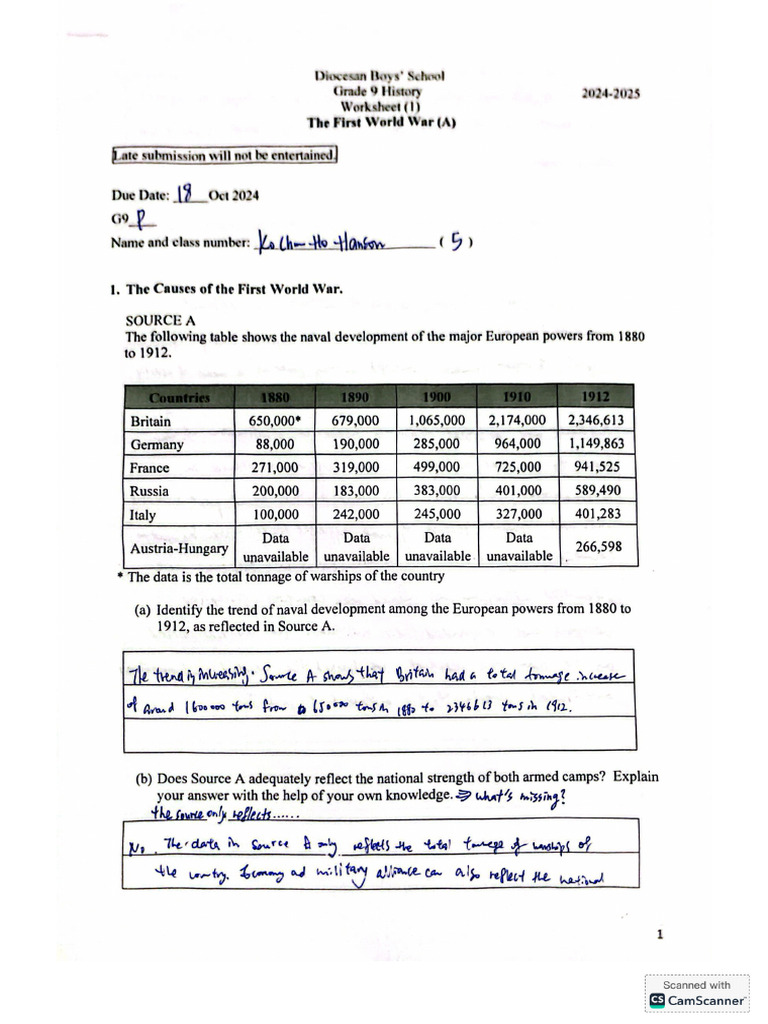 Diocesan Boys' School
Grade 9 History
2024-2025
Worksheet (1)
The First World War (A)
Late submission will not be entertained.
Due Date: 18 Oct 2024
G9 P
Name and class number: Ko Chun Ho Hanson ( 5 )
1. The Causes of the First World War.
SOURCE A
The following table shows the naval development of the major European powers from 1880
to 1912.
Countries 1880 1890 1900 1910 1912
Britain 650,000* 679,000 1,065,000 2,174,000 2,346,613
Germany 88,000 190,000 285,000 964,000 1,149,863
France 271,000 319,000 499,000 725,000 941,525
Russia 200,000 183,000 383,000 401,000 589,490
Italy 100,000 242,000 245,000 327,000 401,283
Austria-Hungary Data unavailable Data unavailable Data unavailable Data unavailable 266,598
* The data is the total tonnage of warships of the country
(a) Identify the trend of naval development among the European powers from 1880 to
1912, as reflected in Source A.
The trend is increasing. Source A shows that Britain had a total tonnage increase
of around 1600000 tons from 650000 tons in 1880 to 2346613 tons in 1912.
(b) Does Source A adequately reflect the national strength of both armed camps? Explain
your answer with the help of your own knowledge. ⇒ what's missing?
the source only reflects......
No. The data in source A only reflects the total tonnage of warships of
the country. Economy and military alliance can also reflect the national
1
Scanned with
CS CamScanner